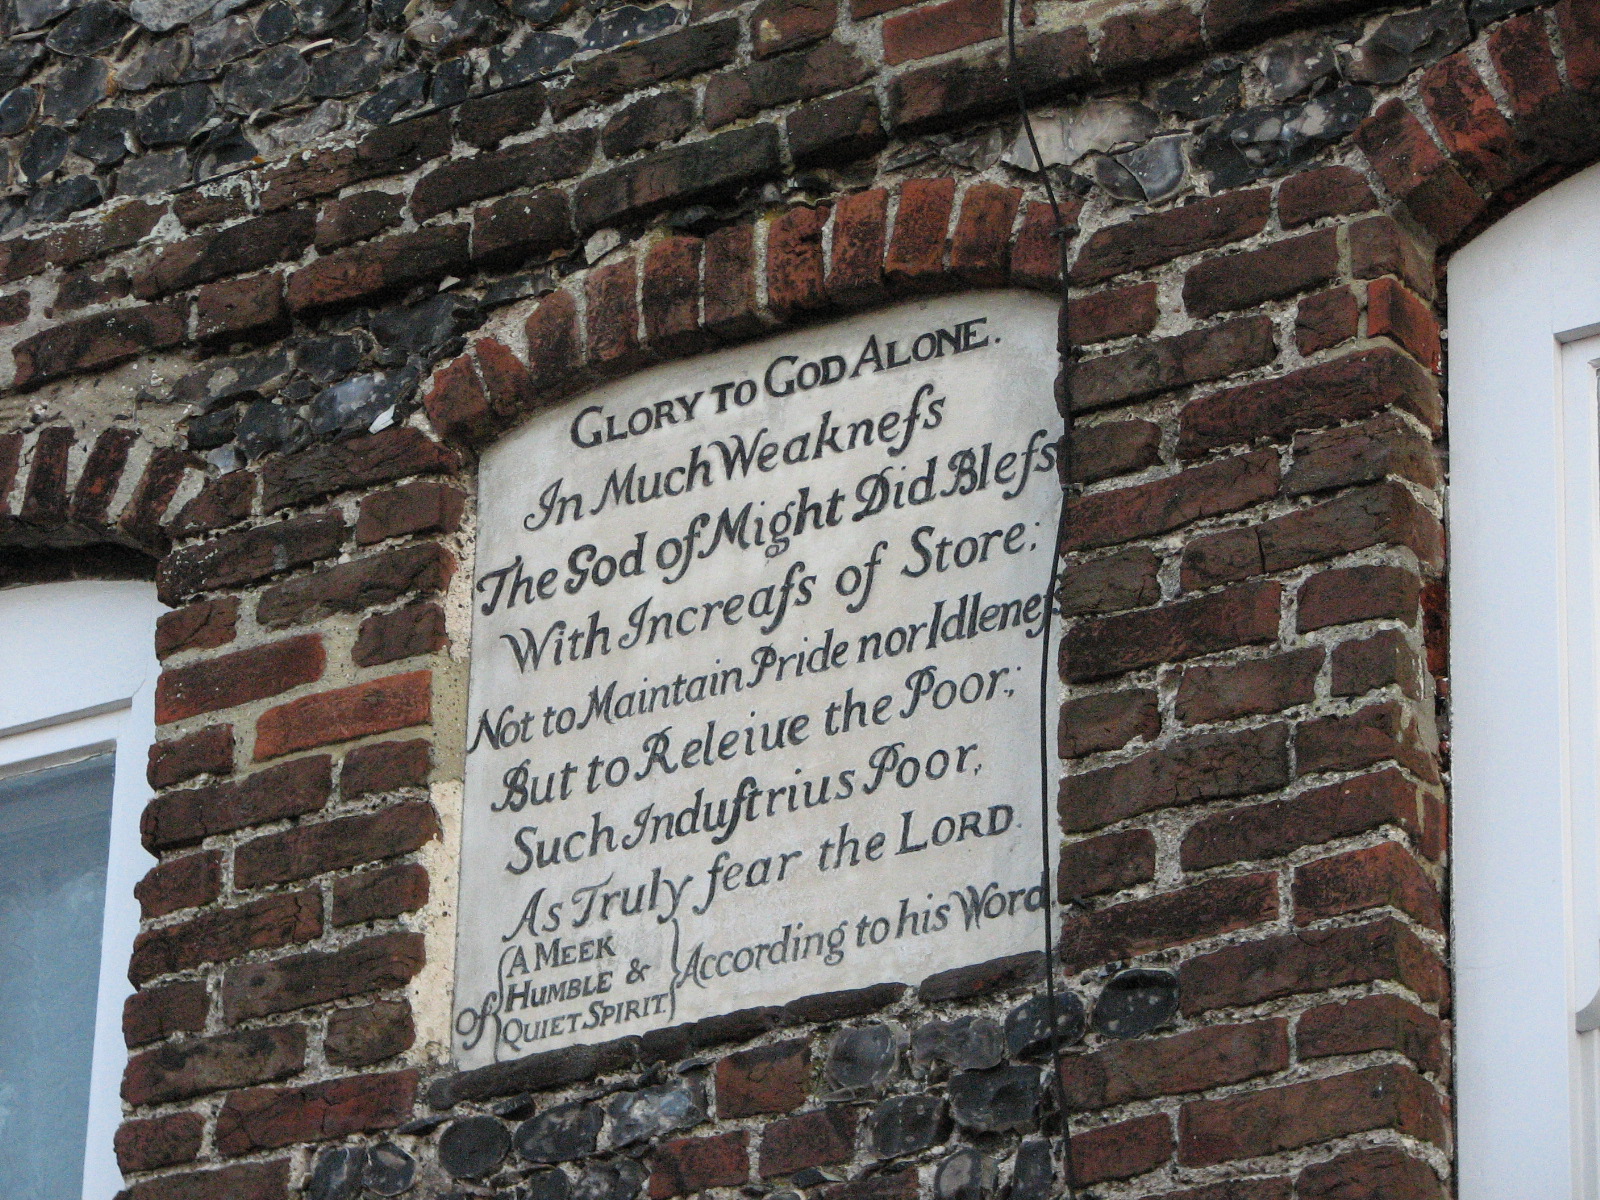 GLORY TO GOD ALONE.
In Much Weakneſs
The God of Might Did Bleſs
With Increaſs of Store;
Not to Maintain Pride nor Idleneſs
But to Releiue the Poor;
Such Induſtrius Poor,
As Truly fear the LORD
Of { A MEEK HUMBLE & QUIET SPIRIT. } According to his Word.